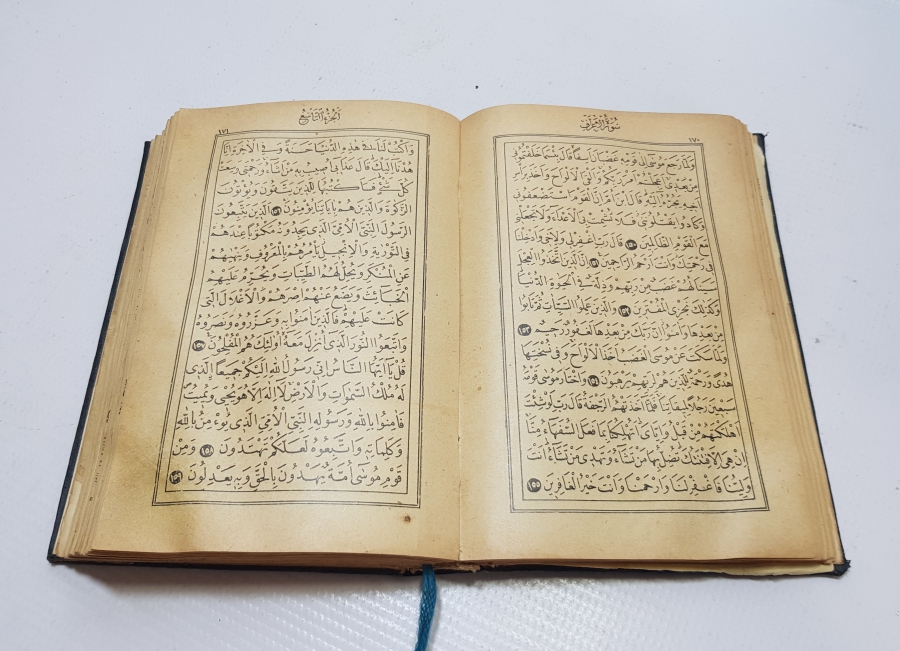 سُورَةُ الْاَعْرَافِ
١٧٠
وَلَمَّا رَجَعَ مُوسٰى اِلٰى قَوْمِهِ غَضْبَانَ اَسِفًا قَالَ بِئْسَمَا خَلَفْتُمُونِي
مِنْ بَعْدِي اَعَجِلْتُمْ اَمْرَ رَبِّكُمْ وَاَلْقَى الْاَلْوَاحَ وَاَخَذَ بِرَأْسِ
اَخِيهِ يَجُرُّهُ اِلَيْهِ قَالَ ابْنَ اُمَّ اِنَّ الْقَوْمَ اسْتَضْعَفُونِي
وَكَادُوا يَقْتُلُونَنِي فَلَا تُشْمِتْ بِيَ الْاَعْدَاءَ وَلَا تَجْعَلْنِي
مَعَ الْقَوْمِ الظَّالِمِينَ ١٥٠ قَالَ رَبِّ اغْفِرْ لِي وَلِاَخِي وَاَدْخِلْنَا
فِي رَحْمَتِكَ وَاَنْتَ اَرْحَمُ الرَّاحِمِينَ ١٥١ اِنَّ الَّذِينَ اتَّخَذُوا الْعِجْلَ
سَيَنَالُهُمْ غَضَبٌ مِنْ رَبِّهِمْ وَذِلَّةٌ فِي الْحَيٰوةِ الدُّنْيَا
وَكَذٰلِكَ نَجْزِي الْمُفْتَرِينَ ١٥٢ وَالَّذِينَ عَمِلُوا السَّيِّاٰتِ ثُمَّ تَابُوا
مِنْ بَعْدِهَا وَاٰمَنُوا اِنَّ رَبَّكَ مِنْ بَعْدِهَا لَغَفُورٌ رَحِيمٌ ١٥٣
وَلَمَّا سَكَتَ عَنْ مُوسَى الْغَضَبُ اَخَذَ الْاَلْوَاحَ وَفِي نُسْخَتِهَا
هُدًى وَرَحْمَةٌ لِلَّذِينَ هُمْ لِرَبِّهِمْ يَرْهَبُونَ ١٥٤ وَاخْتَارَ مُوسٰى قَوْمَهُ
سَبْعِينَ رَجُلًا لِمِيقَاتِنَا فَلَمَّا اَخَذَتْهُمُ الرَّجْفَةُ قَالَ رَبِّ لَوْ شِئْتَ
اَهْلَكْتَهُمْ مِنْ قَبْلُ وَاِيَّايَ اَتُهْلِكُنَا بِمَا فَعَلَ السُّفَهَاءُ مِنَّا
اِنْ هِيَ اِلَّا فِتْنَتُكَ تُضِلُّ بِهَا مَنْ تَشَاءُ وَتَهْدِي مَنْ تَشَاءُ اَنْتَ
وَلِيُّنَا فَاغْفِرْ لَنَا وَارْحَمْنَا وَاَنْتَ خَيْرُ الْغَافِرِينَ ١٥٥
اَلْجُزْءُ التَّاسِعُ
١٧١
وَاكْتُبْ لَنَا فِي هٰذِهِ الدُّنْيَا حَسَنَةً وَفِي الْاٰخِرَةِ اِنَّا
هُدْنَا اِلَيْكَ قَالَ عَذَابِي اُصِيبُ بِهِ مَنْ اَشَاءُ وَرَحْمَتِي وَسِعَتْ
كُلَّ شَيْءٍ فَسَاَكْتُبُهَا لِلَّذِينَ يَتَّقُونَ وَيُؤْتُونَ
الزَّكٰوةَ وَالَّذِينَ هُمْ بِاٰيَاتِنَا يُؤْمِنُونَ ١٥٦ اَلَّذِينَ يَتَّبِعُونَ
الرَّسُولَ النَّبِيَّ الْاُمِّيَّ الَّذِي يَجِدُونَهُ مَكْتُوبًا عِنْدَهُمْ
فِي التَّوْرٰيةِ وَالْاِنْجِيلِ يَأْمُرُهُمْ بِالْمَعْرُوفِ وَيَنْهٰيهُمْ
عَنِ الْمُنْكَرِ وَيُحِلُّ لَهُمُ الطَّيِّبَاتِ وَيُحَرِّمُ عَلَيْهِمُ
الْخَبَائِثَ وَيَضَعُ عَنْهُمْ اِصْرَهُمْ وَالْاَغْلَالَ الَّتِي
كَانَتْ عَلَيْهِمْ فَالَّذِينَ اٰمَنُوا بِهِ وَعَزَّرُوهُ وَنَصَرُوهُ
وَاتَّبَعُوا النُّورَ الَّذِي اُنْزِلَ مَعَهُ اُولٰئِكَ هُمُ الْمُفْلِحُونَ ١٥٧
قُلْ يَا اَيُّهَا النَّاسُ اِنِّي رَسُولُ اللّٰهِ اِلَيْكُمْ جَمِيعًا الَّذِي
لَهُ مُلْكُ السَّمٰوَاتِ وَالْاَرْضِ لَا اِلٰهَ اِلَّا هُوَ يُحْيِي وَيُمِيتُ
فَاٰمِنُوا بِاللّٰهِ وَرَسُولِهِ النَّبِيِّ الْاُمِّيِّ الَّذِي يُؤْمِنُ بِاللّٰهِ
وَكَلِمَاتِهِ وَاتَّبِعُوهُ لَعَلَّكُمْ تَهْتَدُونَ ١٥٨ وَمِنْ
قَوْمِ مُوسٰى اُمَّةٌ يَهْدُونَ بِالْحَقِّ وَبِهِ يَعْدِلُونَ ١٥٩